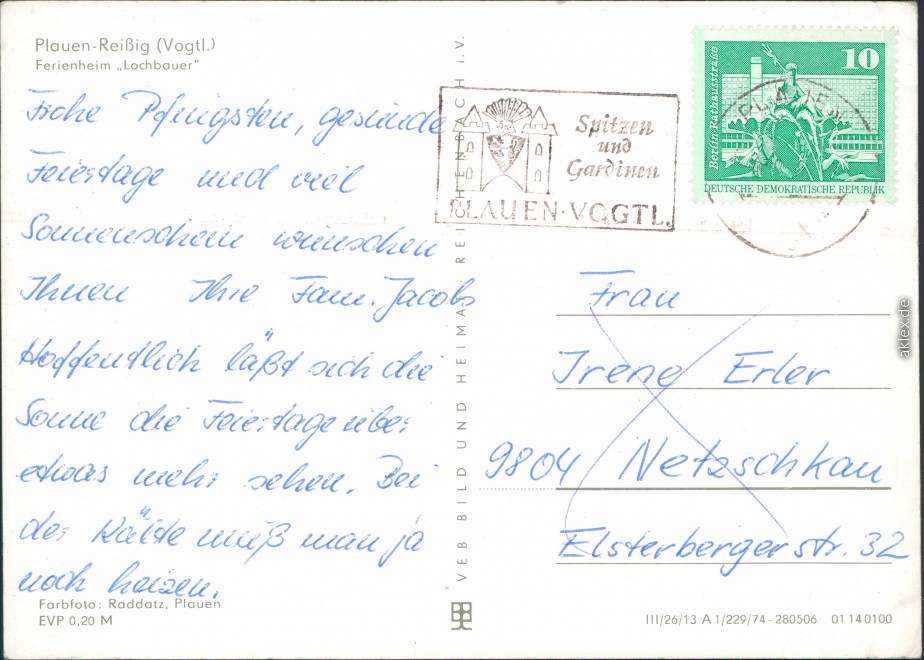 Plauen-Reißig (Vogtl.)
Ferienheim „Lochbauer"
Frohe Pfingsten, gesunde
Feiertage und viel
Sonnenschein wünschen
Ihnen Ihre Fam. Jacobs
Hoffentlich läßt sich die
Sonne die Feiertage über
etwas mehr sehen. Bei
der Kälte muß man ja
noch heizen.
Farbfoto: Raddatz, Plauen
EVP 0,20 M
VEB BILD UND HEIMAT REICHENBACH i.V.
Spitzen
und
Gardinen
PLAUEN·VOGTL.
10
Berlin-Rathausstraße
DEUTSCHE DEMOKRATISCHE REPUBLIK
Frau
Irene Erler
9804 Netzschkau
Elsterbergerstr. 32
III/26/13 A 1/229/74 - 280506 01 14 0100
aklex.de